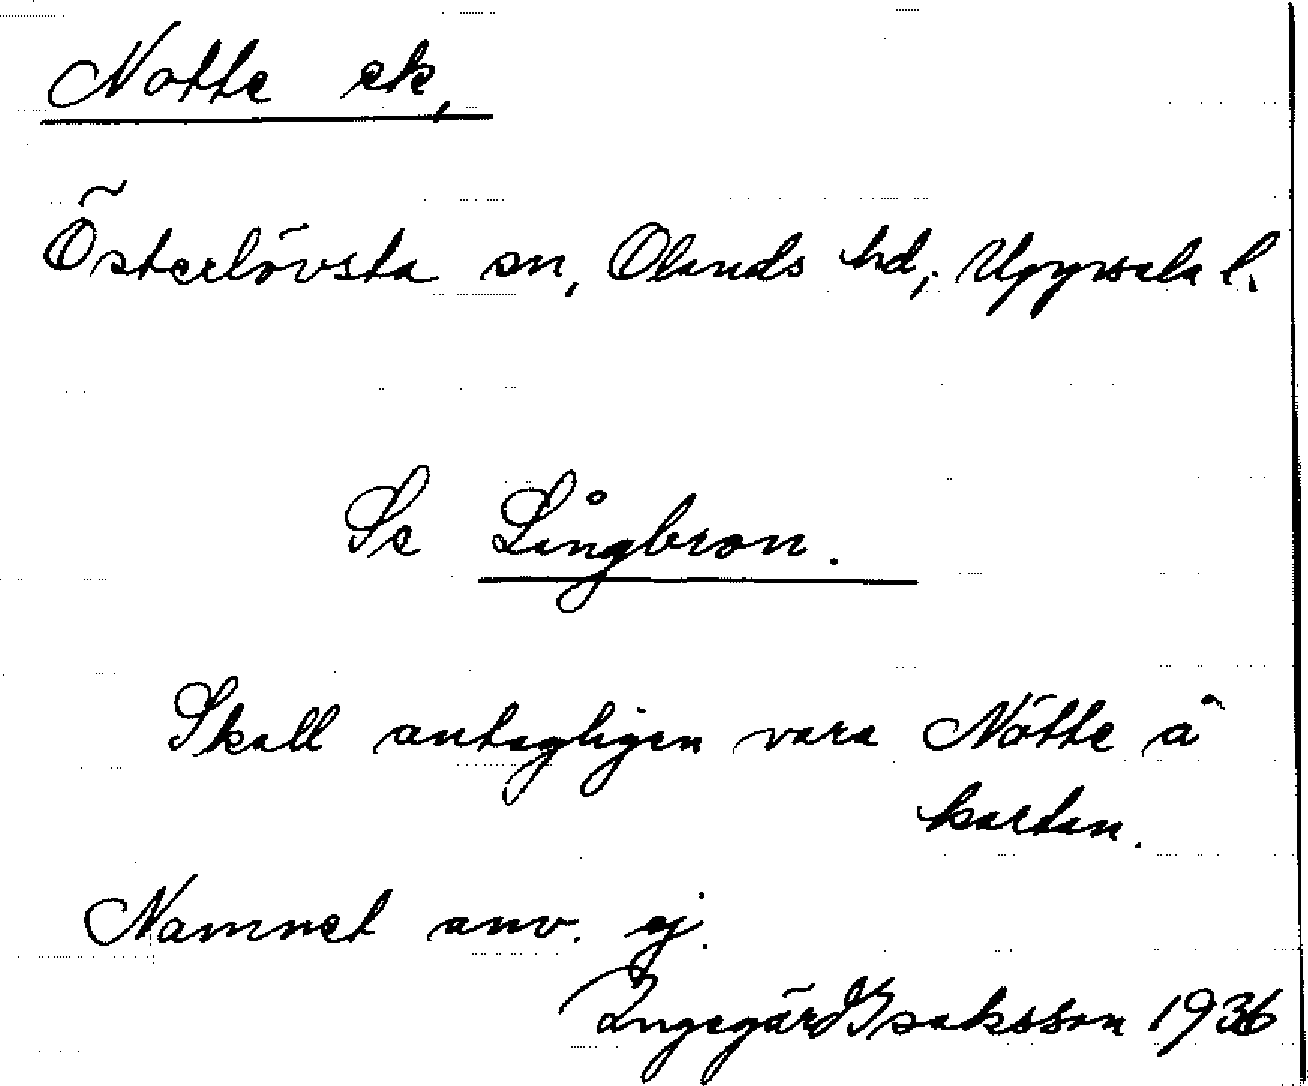 Notte ek,
Österlövsta sn, Olands hd, Uppsala l.
Se Långbron.
Skall antagligen vara Nötte å
kartan.
Namnet anv. ej.
Ingegärd Isaksson 1936